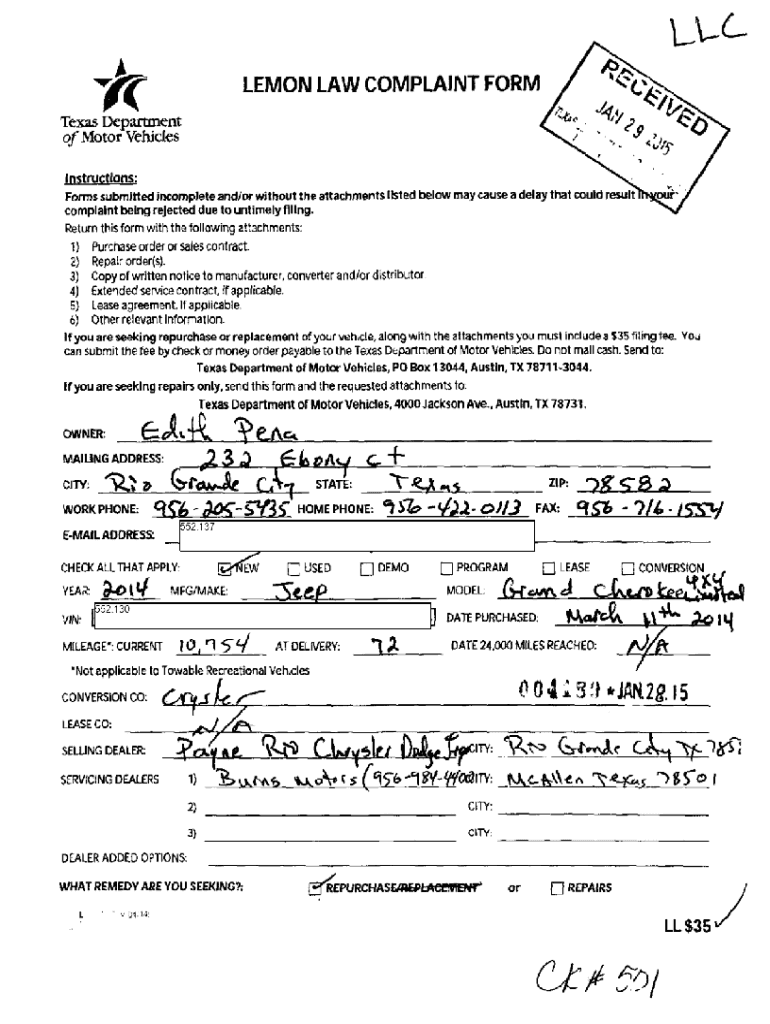 LLC
LEMON LAW COMPLAINT FORM
RECEIVED
JAN 29 2015
Texas Department
of Motor Vehicles
Instructions:
Forms submitted incomplete and/or without the attachments listed below may cause a delay that could result in your
complaint being rejected due to untimely filing.
Return this form with the following attachments:
1) Purchase order or sales contract.
2) Repair order(s).
3) Copy of written notice to manufacturer, converter and/or distributor
4) Extended service contract, if applicable.
5) Lease agreement. If applicable.
6) Other relevant information.
If you are seeking repurchase or replacement of your vehicle, along with the attachments you must include a $35 filing fee. You
can submit the fee by check or money order payable to the Texas Department of Motor Vehicles. Do not mail cash. Send to:
Texas Department of Motor Vehicles, PO Box 13044, Austin, TX 78711-3044.
If you are seeking repairs only, send this form and the requested attachments to:
Texas Department of Motor Vehicles, 4000 Jackson Ave., Austin, TX 78731.
OWNER: Edith Pena
MAILING ADDRESS: 232 Ebony ct
CITY: Rio Grande City STATE: Texas ZIP: 78582
WORK PHONE: 956-205-5435 HOME PHONE: 956-422-0113 FAX: 956-716-1554
E-MAIL ADDRESS: 552.137
CHECK ALL THAT APPLY: NEW USED DEMO PROGRAM LEASE CONVERSION
YEAR: 2014 MFG/MAKE: Jeep MODEL: Grand Cherokee Limited 4x4
VIN: 552.130 DATE PURCHASED: March 11th 2014
MILEAGE*: CURRENT 10,754 AT DELIVERY: 72 DATE 24,000 MILES REACHED: N/A
*Not applicable to Towable Recreational Vehicles
CONVERSION CO: Crysler JAN.28.15
LEASE CO: N/A
SELLING DEALER: Payne Rio Chrysler Dodge Jeep CITY: Rio Grande City Tx 785
SERVICING DEALERS 1) Burns Motors (956-984-4400 CITY: McAllen Texas 78501
2) CITY:
3) CITY:
DEALER ADDED OPTIONS:
WHAT REMEDY ARE YOU SEEKING?: REPURCHASE/REPLACEMENT or REPAIRS
LL $35
CK# 501